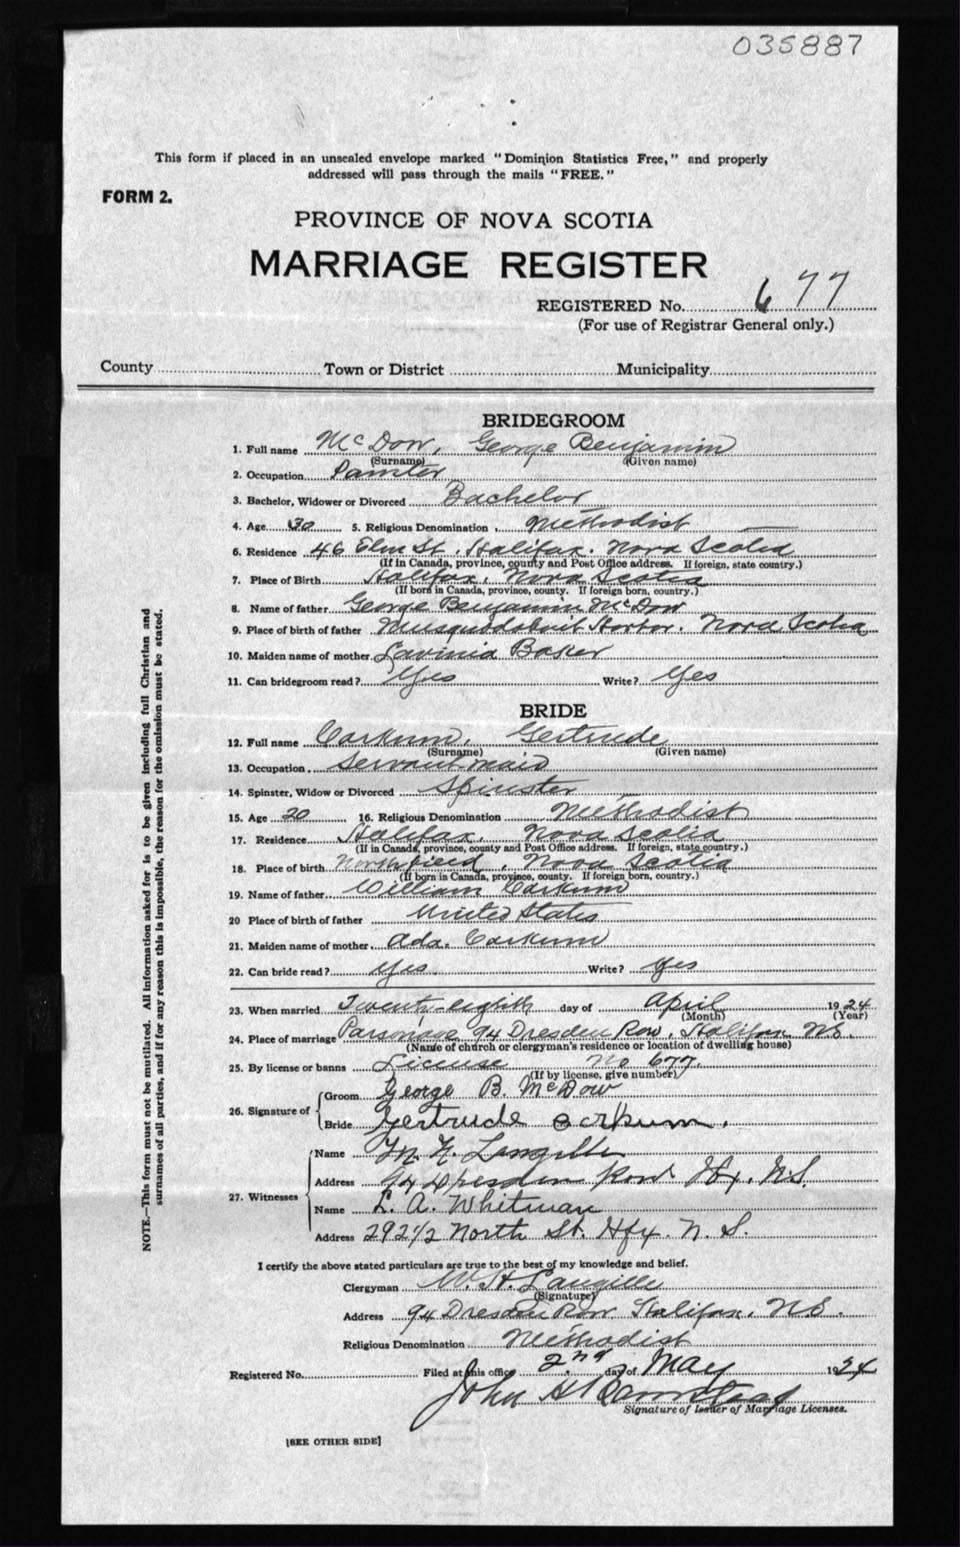 035887
This form if placed in an unsealed envelope marked "Dominion Statistics Free," and properly
addressed will pass through the mails "FREE."
FORM 2.
PROVINCE OF NOVA SCOTIA
MARRIAGE REGISTER
REGISTERED No. 677
(For use of Registrar General only.)
County Town or District Municipality
BRIDEGROOM
1. Full name McDow, George Benjamin
(Surname) (Given name)
2. Occupation Painter
3. Bachelor, Widower or Divorced Bachelor
4. Age 30 5. Religious Denomination Methodist
6. Residence 46 Elm St. Halifax. Nova Scotia
(If in Canada, province, county and Post Office address. If foreign, state country.)
7. Place of Birth Halifax, Nova Scotia
(If born in Canada, province, county. If foreign born, country.)
8. Name of father George Benjamin McDow
9. Place of birth of father Musquodoboit Harbor. Nova Scotia
10. Maiden name of mother Lavinia Baker
11. Can bridegroom read? Yes Write? Yes
BRIDE
12. Full name Corkum, Gertrude
(Surname) (Given name)
13. Occupation Servant maid
14. Spinster, Widow or Divorced Spinster
15. Age 20 16. Religious Denomination Methodist
17. Residence Halifax, Nova Scotia
(If in Canada, province, county and Post Office address. If foreign, state country.)
18. Place of birth Northfield, Nova Scotia
(If born in Canada, province, county. If foreign born, country.)
19. Name of father William Corkum
20 Place of birth of father United States
21. Maiden name of mother Ada Corkum
22. Can bride read? Yes Write? Yes
23. When married Twenty-eighth day of April 1924
(Month) (Year)
24. Place of marriage Parsonage 94 Dresden Row, Halifax N.S.
(Name of church or clergyman's residence or location of dwelling house)
25. By license or banns License No 677.
(If by license, give number)
26. Signature of Groom George B. McDow
Bride Gertrude Corkum.
27. Witnesses Name Langille
Address 94 Dresden Row Hfx. N.S.
Name L. A. Whitman
Address 292 1/2 North St. Hfx. N. S.
I certify the above stated particulars are true to the best of my knowledge and belief.
Clergyman W. H. Langille
(Signature)
Address 94 Dresden Row Halifax, N.S.
Religious Denomination Methodist
Registered No. Filed at this office 2nd day of May 1924
John H Barnstead
Signature of Issuer of Marriage Licenses.
[SEE OTHER SIDE]
NOTE.—This form must not be mutilated. All information asked for is to be given including full Christian and
surnames of all parties, and if for any reason this is impossible, the reason for the omission must be stated.